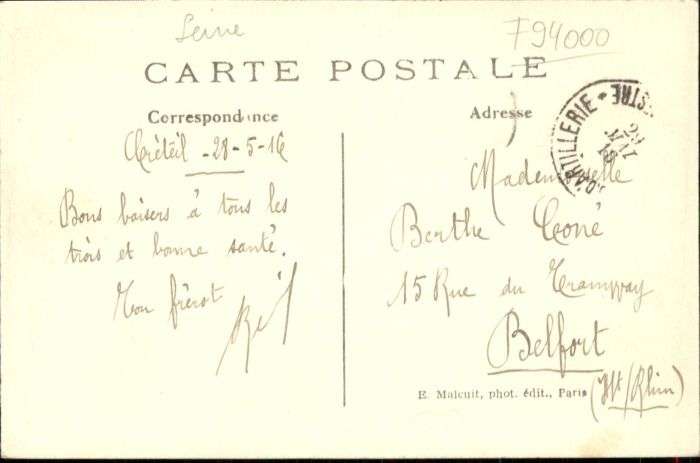 Seine
F94000
CARTE POSTALE
Correspondance
Créteil - 28-5-16
Bons baisers à tous les
trois et bonne santé.
Ton frérot
Adresse
Mademoiselle
Berthe Coné
15 Rue du Tramway
Belfort
(Ht/Rhin)
E. Malcuit, phot. édit., Paris
D'ARTILLERIE